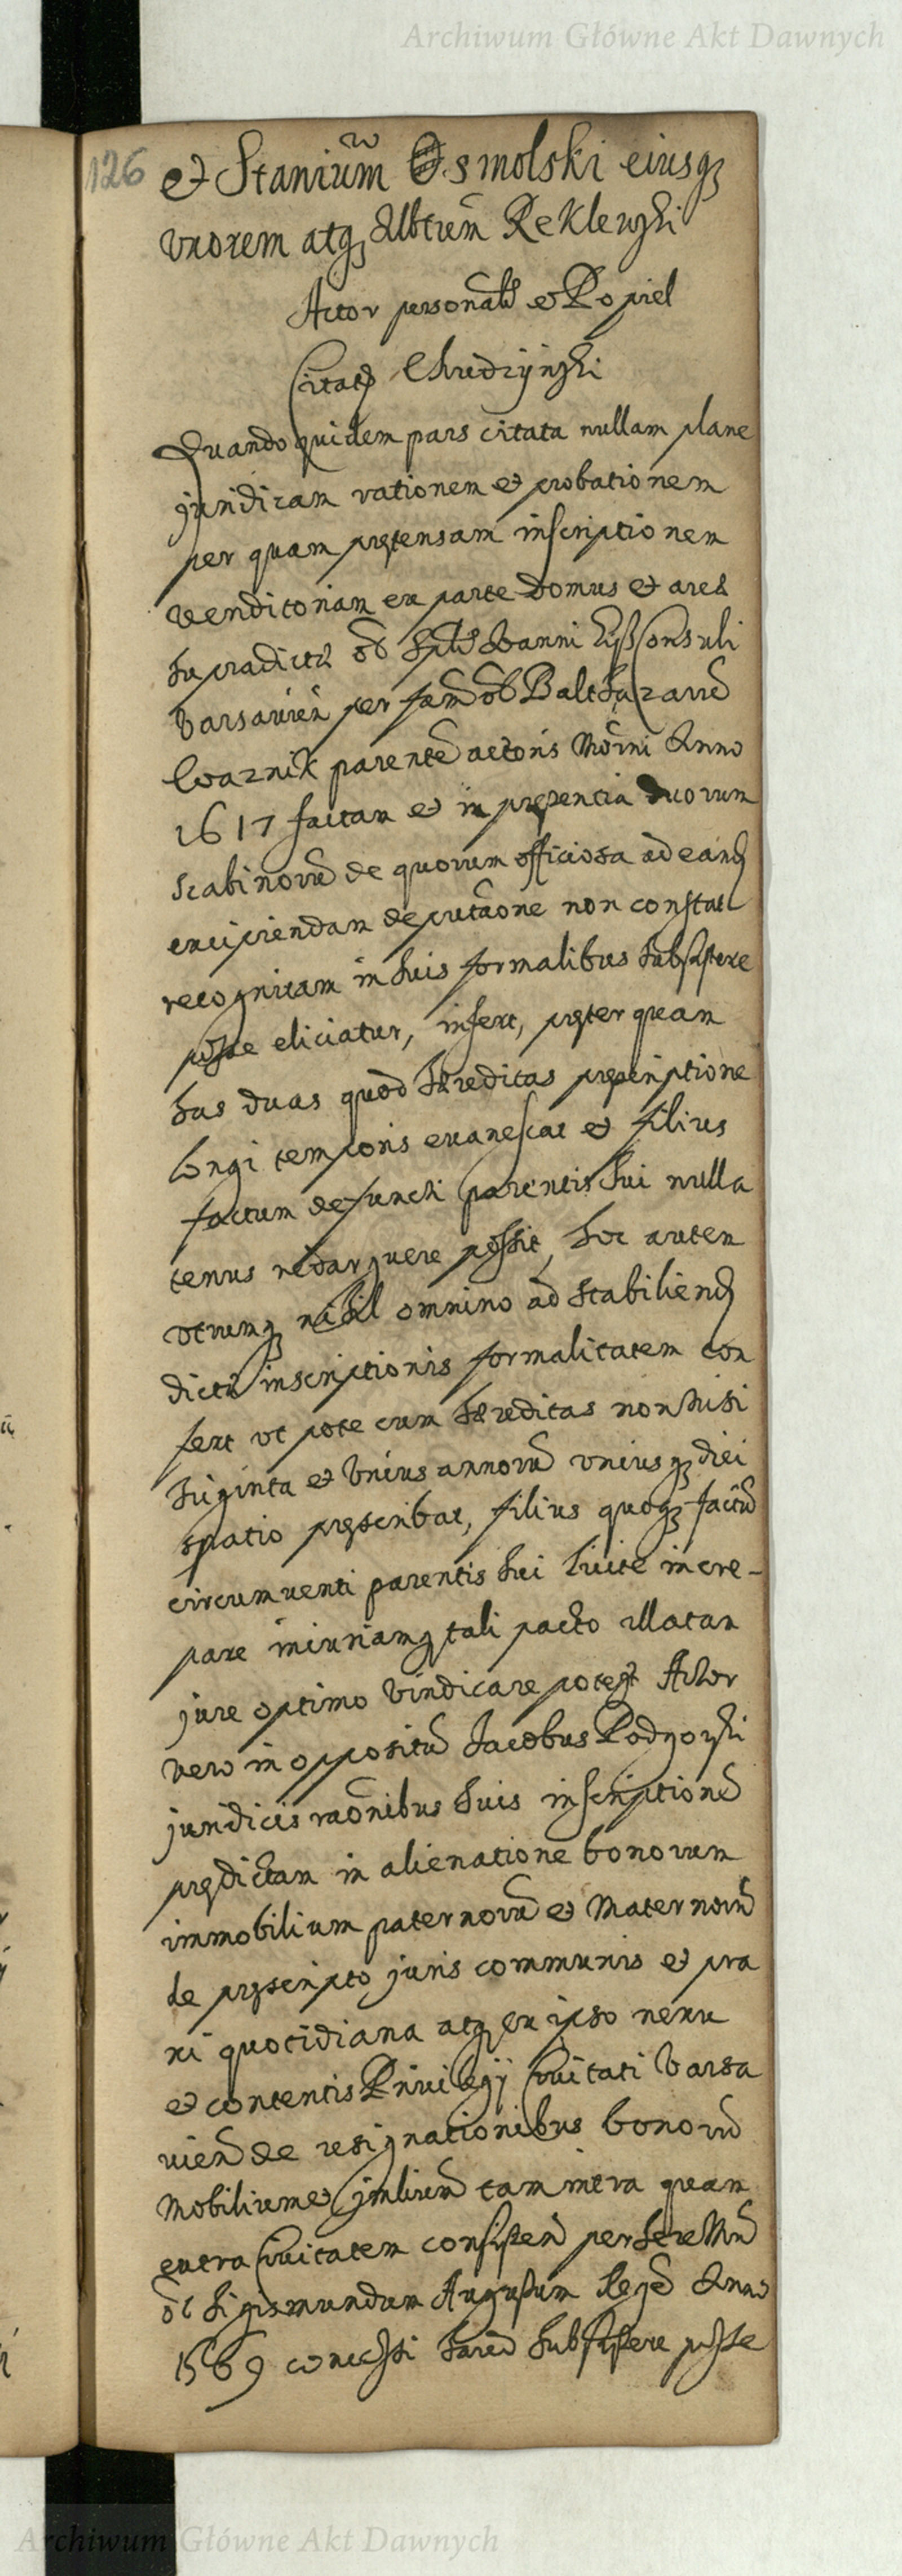 Archiwum Główne Akt Dawnych
126
et Staniũm Osmolski eiusq;
uxorem atq; Albtum Reklewski
Actor personalr et Popiel
Citats Chudzyński
Quandoquidem pars citata nullam plane
juridicam rationem et probationem
per quam prętensam inscriptionem
venditoriam ex parte domus et areæ
supradictæ
Varsavien per fam Balthazarũ
parentẽ actoris Anno
1617 factam et in pręsentia duorum
scabinorũ de quorum officiosa ad eand
excipiendam deputãone non constat
recognitam in suis formalibus subsistere
posse eliciatur, infert, pręterquam
has duas quod hæreditas pręscriptione
longi temporis evanescat et filius
factum defuncti parentis sui nulla
tenus redarguere possit, hoc autem
utrumq; nihil omnino ad stabiliend
dictæ inscriptionis formalitatem con
fert ut pote cum hæreditas non nisi
triginta et unius annorũ uniusq; diei
spatio pręscribat, filius quoq; factũ
circumventi parentis sui licite incre-
pare iniuriamq; tali pacto illatam
jure optimo vindicare potest Actor
vero in oppositũ Jacobus Podgorski
juridicis raõnibus suis inscriptionẽ
prędictam in alienatione bonorum
immobilium paternorũ et maternorũ
de pręscripto juris communis et pra
xi quotidiana atq; ex ipso nexu
et contentis Privilegij Civitati Varsa
vien de resignationibus bonorũ
mobilium et imliumũ tam intra quam
extra Civitatem consisten per Seremũ
ol Sigismundum Augustum Regẽ Anno
1569 concessi subsistere posse
Archiwum Główne Akt Dawnych